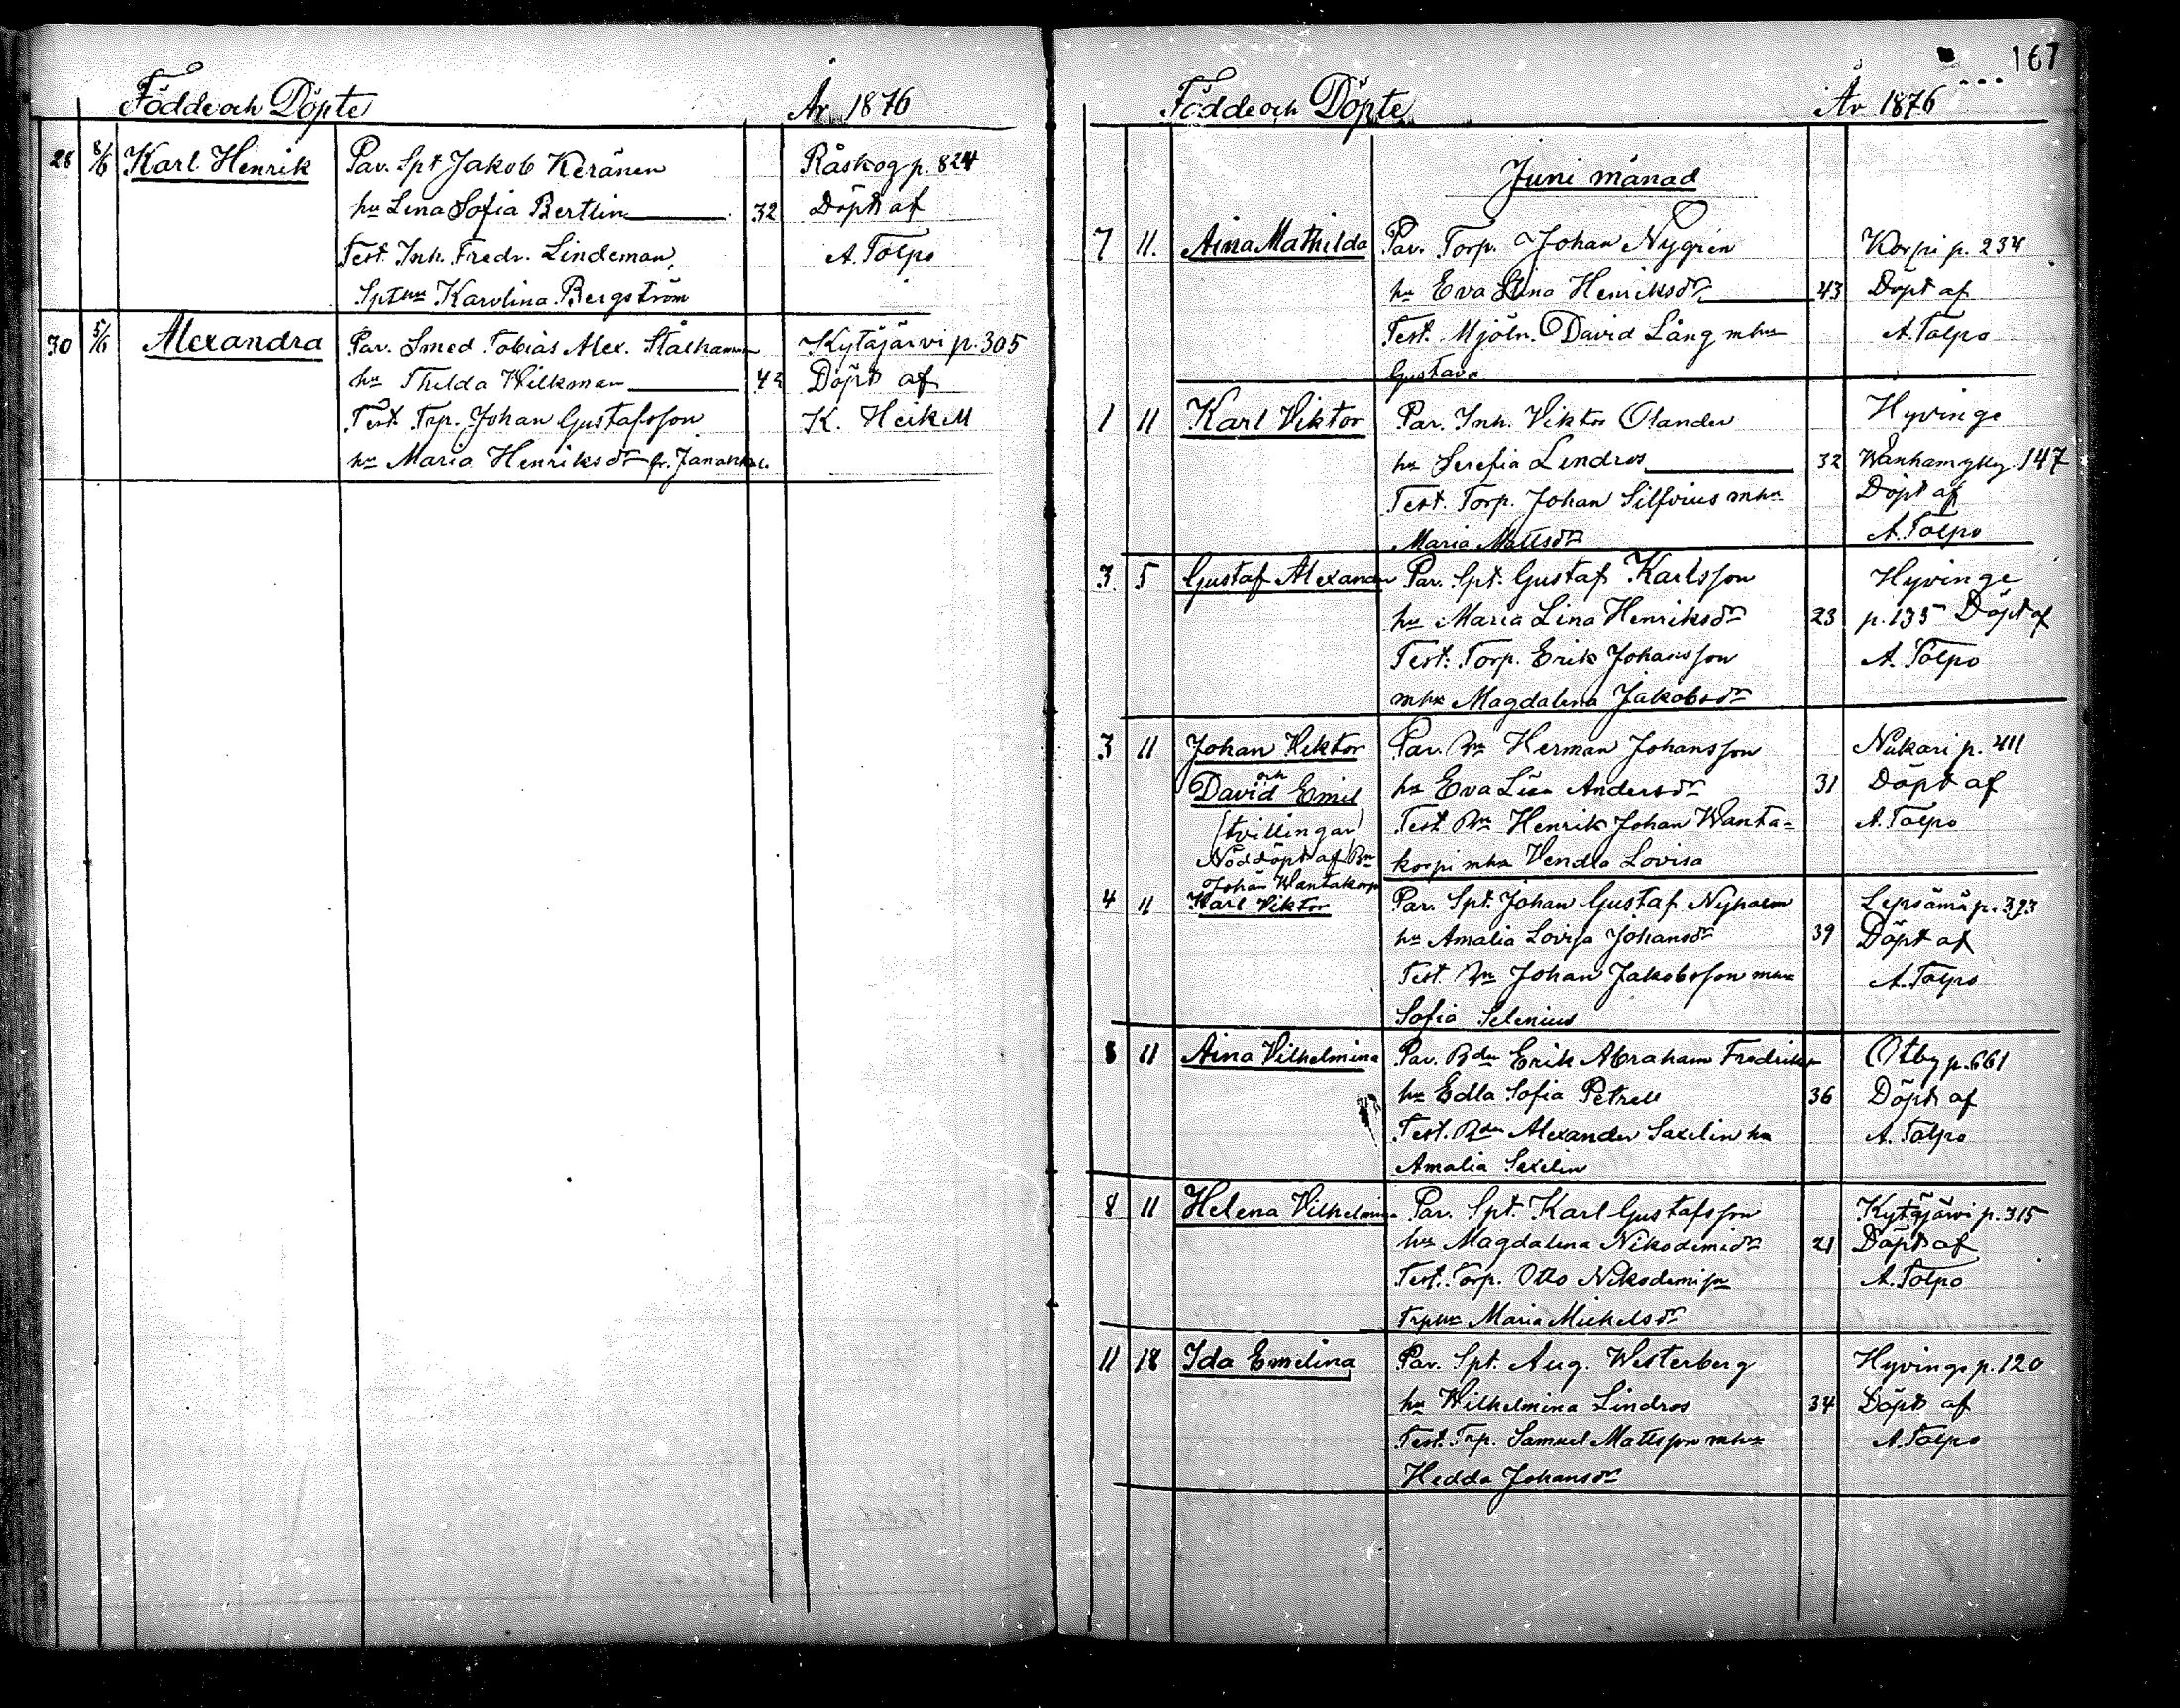 Födde och Döpte År 1876
28 8/6 Karl Henrik Par. Spt Jakob Keränen Råskog p. 824
hu Lena Sofia Bertlin 32 Döpt af
Test. Inh. Fredr. Lindeman, A. Tolpo
Spthu Karolina Bergström
30 5/6 Alexandra Par. Smed Tobias Alex. Kytäjärvi p. 305
hu Thilda Wilkman 42 Döpt af
Test. Trp. Johan Gustafsson K. Heikell
hu Maria Henriksdr fr. Janakkala
167
Födde och Döpte År 1876
Juni månad
7 11. Aina Mathilda Par. Torp. Johan Nygrén Korpi p. 234
hu Eva Stina Henriksdr 43 Döpt af
Test. Mjöln. David Lång mhu A. Tolpo
Gustava
1 11 Karl Viktor Par. Inh. Viktor Olander Hyvinge
hu Serefia Lindros 32 Wanhamyky 147
Test. Torp. Johan Silfvius mhu Döpt af
Maria Mattsdr A. Tolpo
3 5 Gustaf Alexander Par. Spt. Gustaf Karlsson Hyvinge
hu Maria Lina Henriksdr 23 p. 135 Döpt af
Test. Torp. Erik Johansson A. Tolpo
mhu Magdalena Jakobsdr
3 11 Johan Viktor Par. Bn Herman Johansson Nukari p. 411
och
David Emil hu Eva Lisa Andersdr 31 Döpt af
(tvillingar) Test. Bn Henrik Johan Wanta- A. Tolpo
Nöddöpt af Bn korpi mhu Vendla Lovisa
Johan Wantakorpi
4 11 Karl Viktor Par. Spt. Johan Gustaf Nyholm Lepsämä p. 393
hu Amalia Lovisa Johansdr 39 Döpt af
Test. Bn Johan Jakobsson mhu A. Tolpo
Sofia Selenius
8 11 Aina Vilhelmina Par. Bdn Erik Abraham Fredriksson Otby p. 661
hu Edla Sofia Petrell 36 Döpt af
Test. Bdn Alexander Saxelin hu A. Tolpo
Amalia Saxelin
8 11 Helena Vilhelmina Par. Spt. Karl Gustafsson Kytäjärvi p. 315
hu Magdalena Nikodemidr 21 Döpt af
Test. Torp. Otto Nikodemisn A. Tolpo
Trphu Maria Mickelsdr
11 18 Ida Emelina Par. Spt. Aug. Westerberg Hyvinge p. 120
hu Wilhelmina Lindros 34 Döpt af
Test. Trp. Samuel Mattsson mhu A. Tolpo
Hedda Johansdr